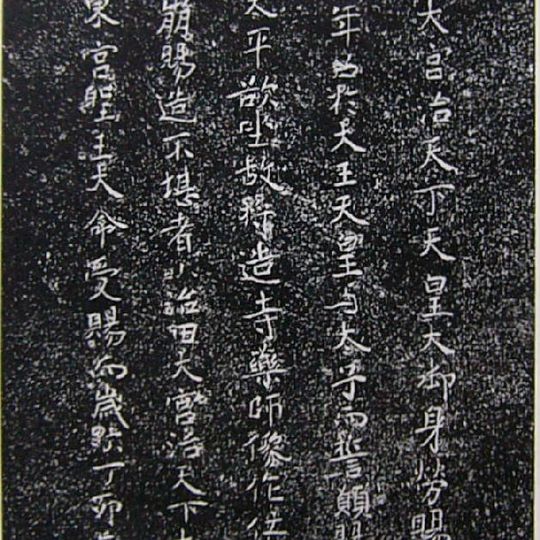 大宮治天下天皇大御身勞賜
年召於大王天皇与太子而誓願賜
太平欲坐故将造寺藥師像作仕
崩賜造不堪者小治田大宮治天下
東宮聖王大命受賜而歳次丁卯